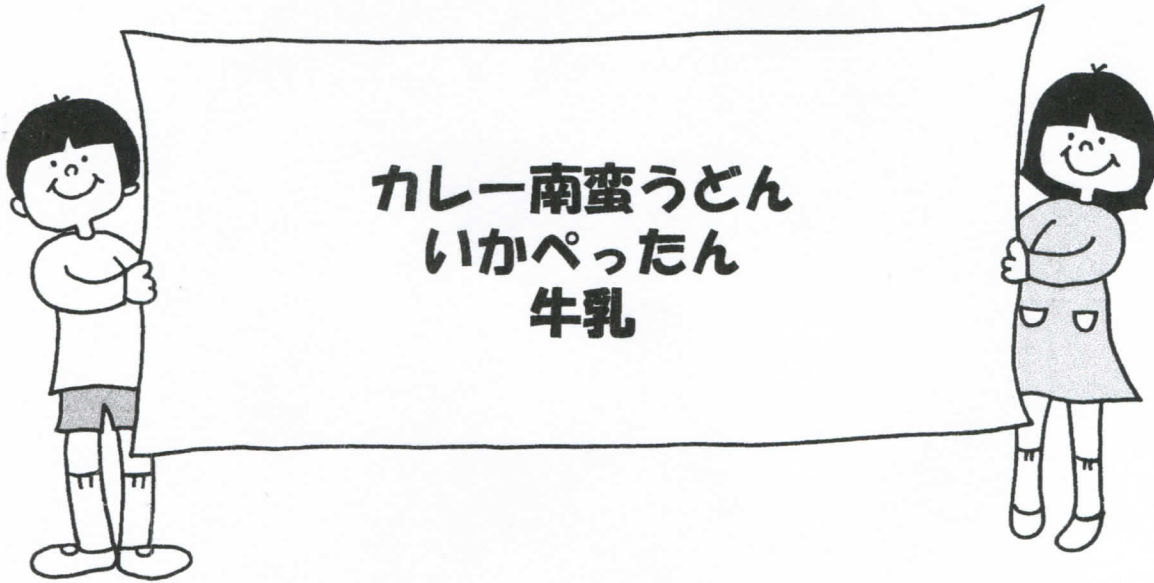 カレー南蛮うどん
いかぺったん
牛乳